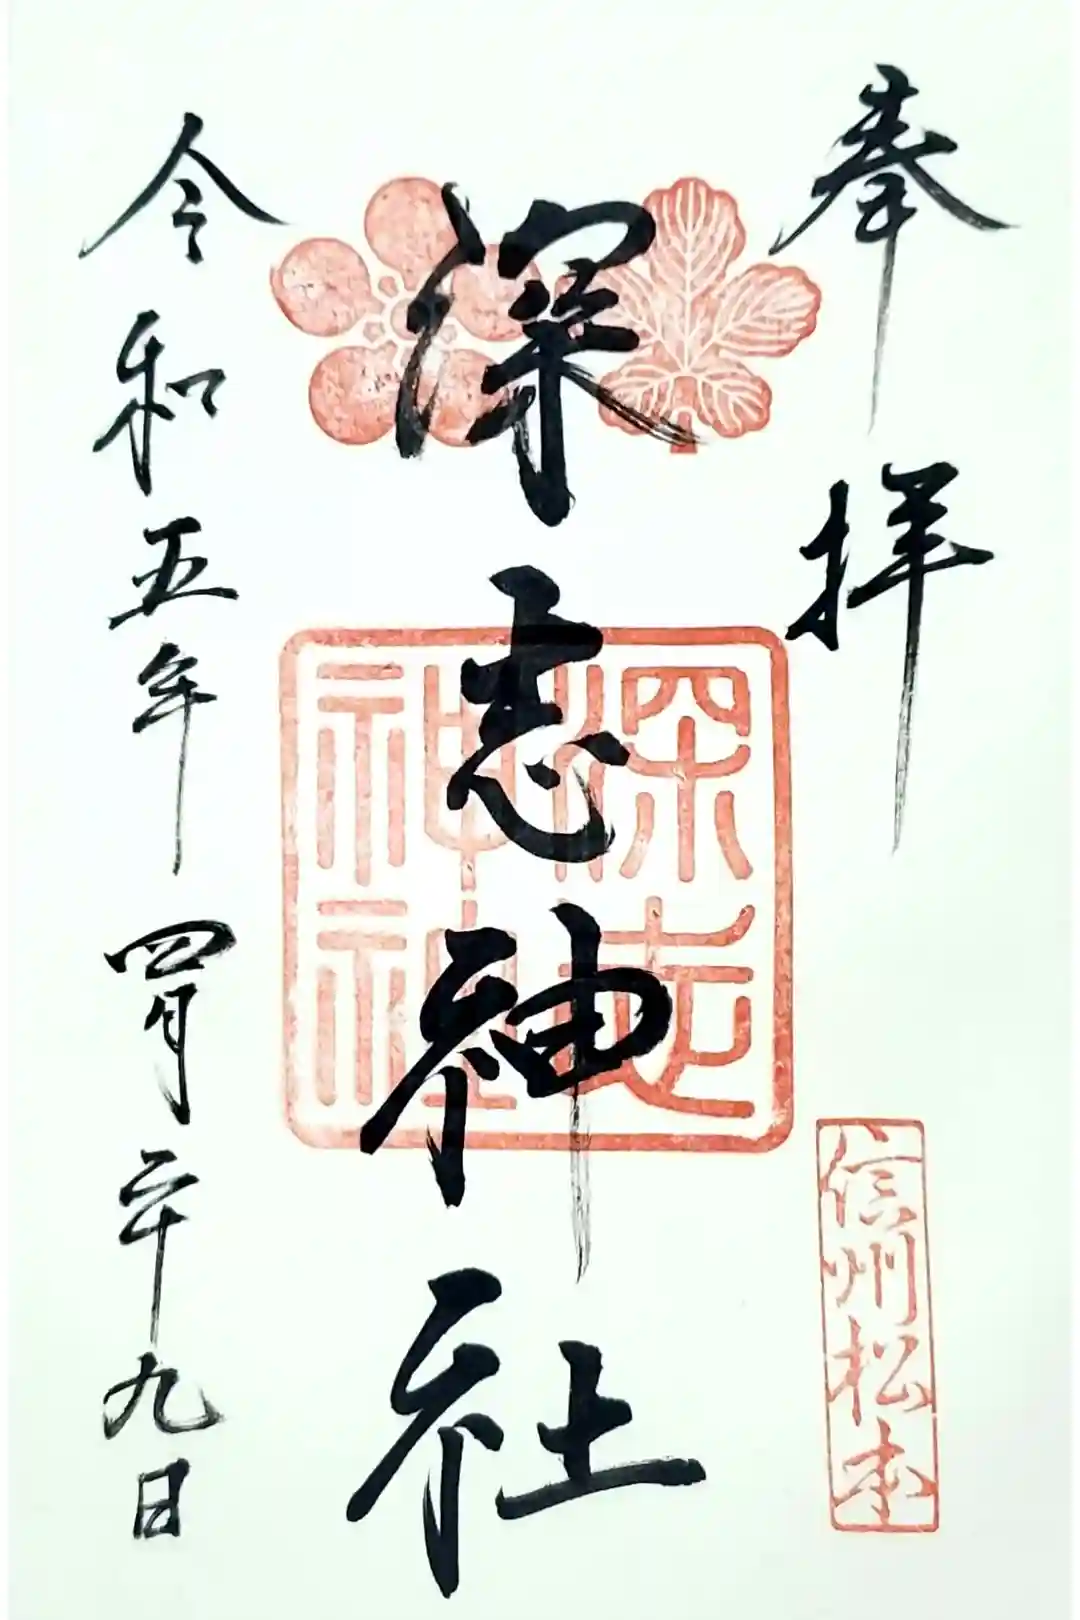 奉拝
信州松本
深志神社
深志
神社
令和五年四月二十九日